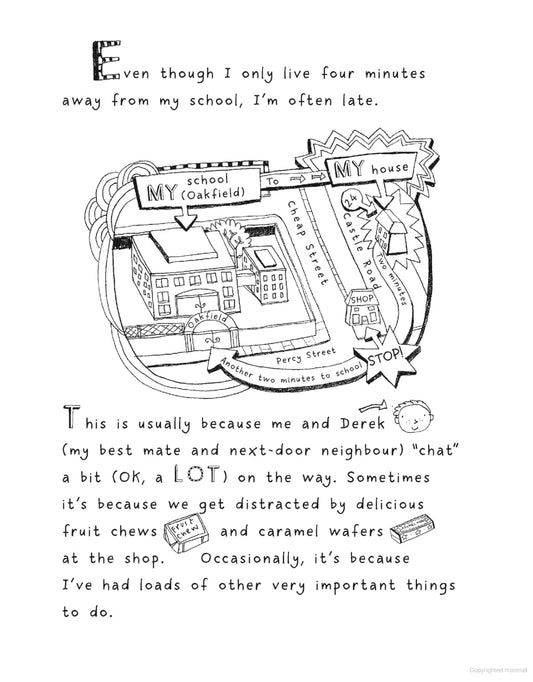 Even though I only live four minutes
away from my school, I'm often late.
MY school
(Oakfield)
To
MY house
24
Cheap Street
Castle Road
Two minutes
SHOP
Oakfield
Percy Street
STOP!
Another two minutes to school
This is usually because me and Derek
(my best mate and next-door neighbour) "chat"
a bit (OK, a LOT) on the way. Sometimes
it's because we get distracted by delicious
fruit chews FRUIT CHEW and caramel wafers
at the shop. Occasionally, it's because
I've had loads of other very important things
to do.
Copyrighted material